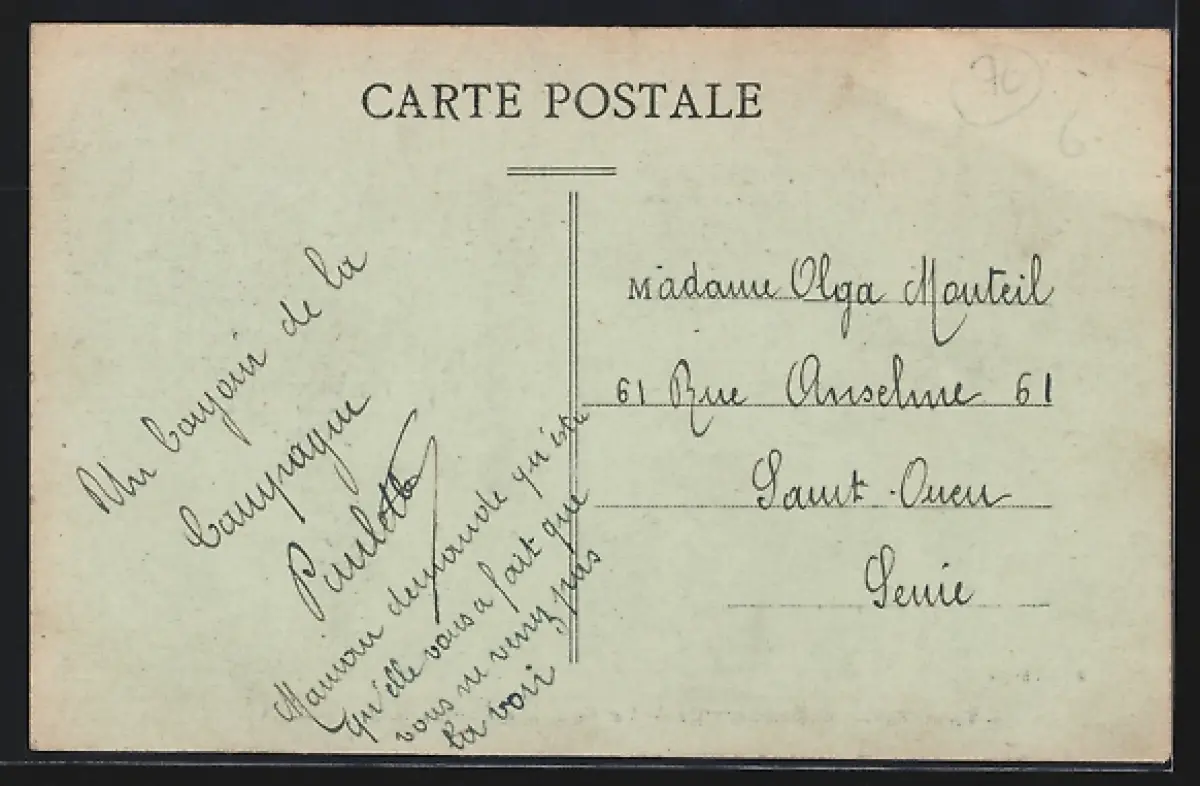 CARTE POSTALE
76
6
Un bonjour de la
Campagne
Paulette
Maman demande qu'est ce
qu'elle vous a fait que
vous ne venez pas
la voir
Madame Olga Monteil
61 Rue Anselme 61
Saint-Ouen
Seine